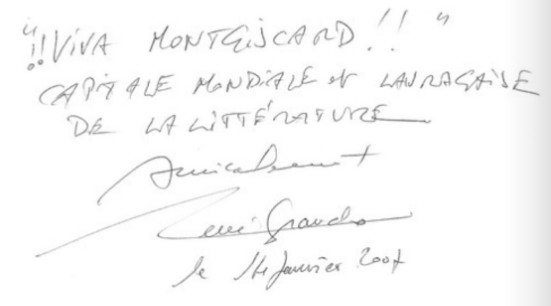 "!! VIVA MONTGISCARD !! "
CAPITALE MONDIALE et LAURAGAISE
DE LA LITTÉRATURE
Amicalement
le 14 Janvier 2007